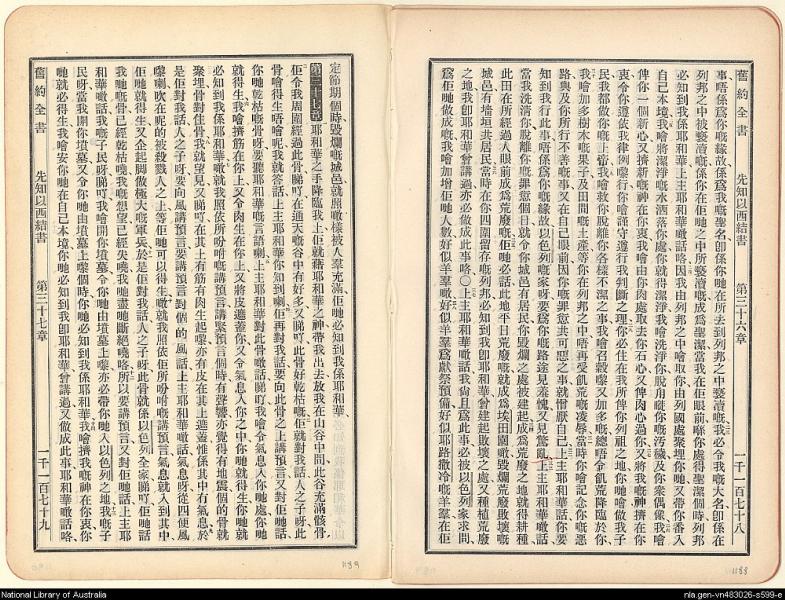 舊約全書 先知以西結書 第三十六章 一千一百七十八
事唔係爲你哋緣故係爲我嘅聖名卽係你哋在所去到列邦之中褻瀆嘅我必令我嘅大名卽係在
列邦之中被褻瀆嘅係你在佢哋之中所褻瀆嘅成爲聖潔當我在佢眼前喺你處得聖潔個時列邦
必知到我係耶和華上主耶和華噉話咯因我由列邦之中噲取你由列國處聚埋你又帶你番入
自己本境我噲將潔淨嘅水洒落你處你就得潔淨我噲洗淨你脫離你嘅污穢及你衆偶像我噲
俾你一個新心又擠新嘅神在你衷我噲由你肉處取去你石心又俾肉心過你又將我嘅神擠在你
衷令你遵依我律例嚟行你噲謹守遵行我判斷之理你必住在我所俾你列祖之地你哋噲做我子
民我都做你嘅上帝我噲救你脫離你各樣不潔之事我噲召穀嚟又加多嘅總唔令飢荒降臨於你
我噲加多樹木嘅果子及田間嘅土產等你在列邦之中唔再受飢荒嘅凌辱當時你噲記念你嘅惡
路與及你所行不善嘅事又在自己眼前因你嘅罪愆共可惡之事就憎厭自己上主耶和華噉話你要
知到我行此事唔係爲你嘅緣故以色列嘅家呀要爲你嘅路途見羞愧又見驚亂上主耶和華噉話
當我洗清你脫離你嘅罪愆個日就令你城邑有居民你毀爛之處被建起成爲荒廢之地就得耕種
此田在所經過人眼前成爲荒廢嘅佢哋必話此地平日荒廢嘅就成爲埃田園噉毀爛荒廢敗壞嘅
城邑有墻垣共居民當時在你四圍留存嘅列邦必知到我卽耶和華曾建起敗壞之處又種植荒廢
之地我卽耶和華曾講過亦必做成此事咯○上主耶和華噉話我尙且爲此事必被以色列家求問
爲佢哋做成嘅我噲加增佢哋人數好似羊羣噉好似羊羣爲獻祭預備好似耶路撒冷嘅羊羣在佢
定節期個時毀爛嘅城邑就照噉樣被人羣充滿佢哋必知到我係耶和華
第三十七章 耶和華之手降臨我上佢就藉耶和華之神帶我出去放我在山谷中間此谷充滿骸骨
佢令我周圍經過此骨睇吓在通天嘅谷中有好多又睇吓此骨好乾枯嘅佢就對我話人之子呀此
骨噲得生唔呢我就答話上主耶和華你知到喇佢再對我話要向此骨之上講預言又對佢哋話
你哋乾枯嘅骨呀要聽耶和華嘅言語喇上主耶和華對此骨噉話睇吓我噲令氣息入你哋處你哋
就得生我噲擠筋在你上又令肉生在你上又將皮遮蓋你又令氣息入你之中你哋就得生你哋就
必知到我係耶和華噉我照依所吩咐嘅講預言講緊預言個時有聲響亦覺得有地震個的骨就
聚埋骨對住骨我就望見又睇吓在其上有筋有肉生起嚟亦有皮在其上遮蓋惟係其中冇氣息於
是佢對我話人之子呀要向風講預言要講預言對個的風話上主耶和華噉話氣息呀從四便風
嚟喇吹在呢的被殺戮人之上等佢哋可以得生噉我就照依佢所吩咐嘅講預言氣息就入到其中
佢哋就得生又企起脚做極大嘅軍兵於是佢對我話人之子呀此骨就係以色列全家睇吓佢哋話
我哋嘅骨已經乾枯嘵我嘅想望已經失嘵我哋盡哋斷絕嘵咯所以要講預言又對佢哋話上主耶
和華噉話我嘅子民呀睇吓我噲開你墳墓令你哋由墳墓上嚟亦必帶你哋入以色列之地我嘅子
民呀當我開你墳墓又令你哋由墳墓上嚟個時你哋必知到我係耶和華我噲擠我嘅神在你衷你
哋就必得生我噲安你哋在自己本境你哋必知到我卽耶和華曾講過又做成此事耶和華噉話咯
舊約全書 先知以西結書 第三十七章 一千一百七十九
1189
1188
National Library of Australia
nla.gen-vn483026-s599-e